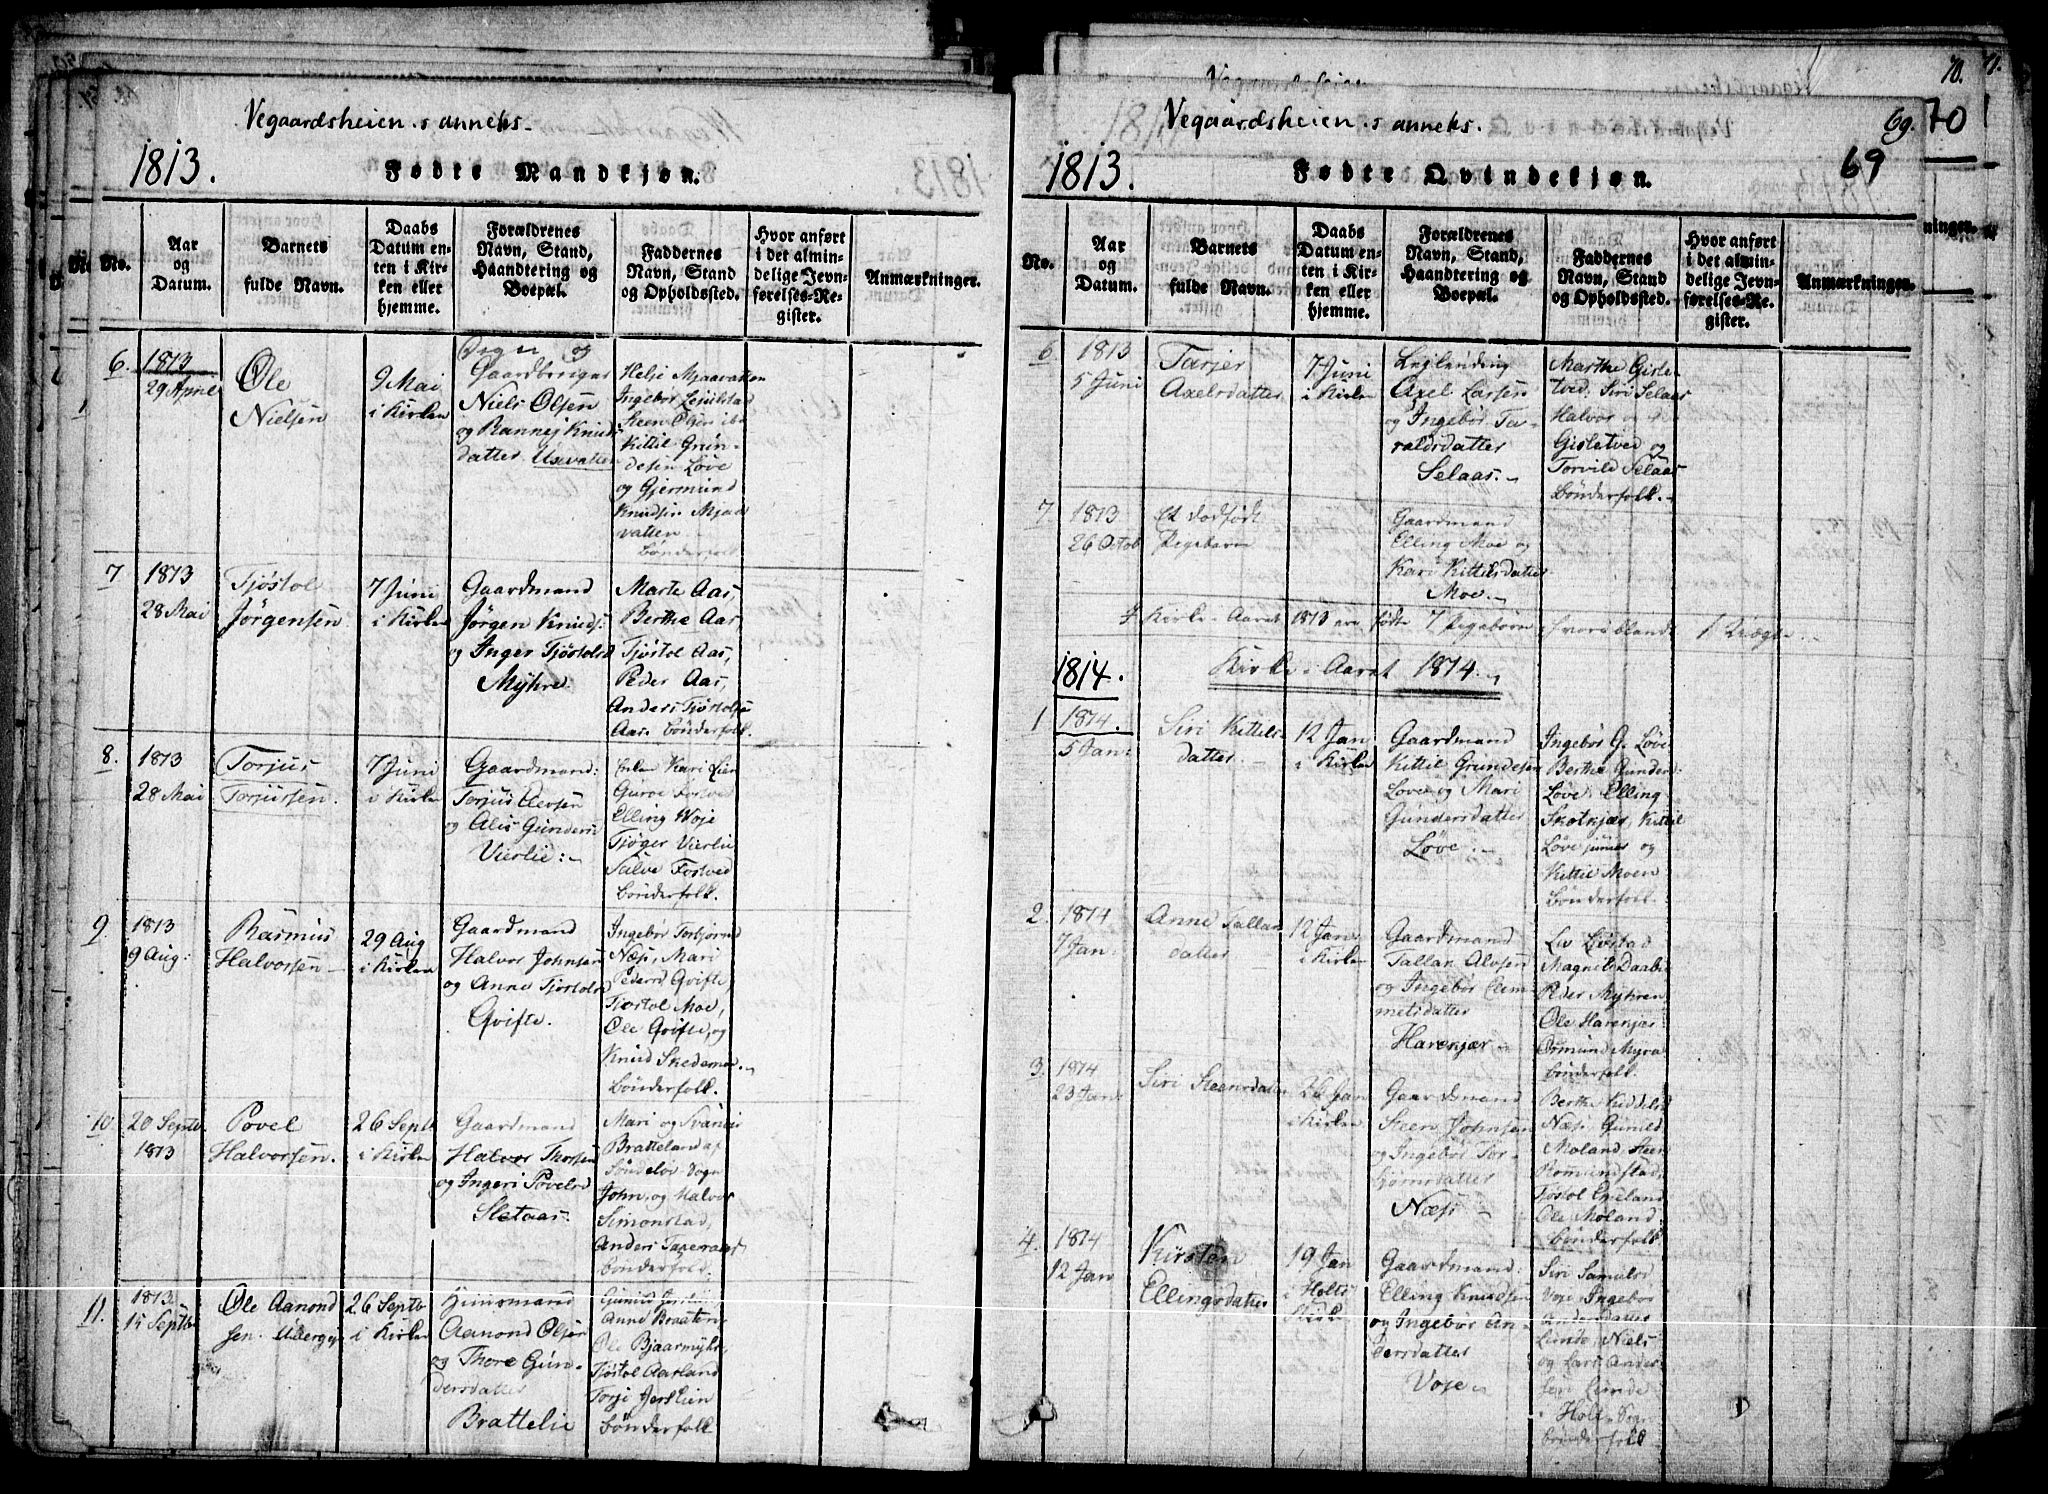 Vegaardsheien s anneks.
1813.
Fødte Mandkjøn.
No.
Aar
og
Datum.
Barnets
fulde Navn.
Daabs
Datum en-
ten i Kir-
ken eller
hjemme.
Forældrenes
Navn, Stand,
Haandtering og
Boepæl.
Faddernes
Navn, Stand
og Opholdssted.
Hvor anført
i det almin-
delige Jevn-
førelses-Re-
gister.
Anmærkninger.
6.
1813
29 April
Ole
Nielsen
9 Mai
i Kirken
og
Gaardbruger
Niels Olsen
og Rannej Knuds
datter Usevatten
Helje Mjaavatten
Ingebor
Steen Olsen ibd
Kittil Grun-
desen Løve
og Gjermund
Knudsen Mjaa
vatten
Bønderfolk
7
1813
28 Mai
Tjøstol
Jørgensen
7 Juni
i Kirken
Gaardmand
Jørgen Knuds:
og Inger Tjøstolsd
Myhre.
Marte Aas
Berthe Aas
Tjøstol Aas,
Peder Aas,
Anders Tjøstolse
Aas. Bønderfolk.
8.
1813
28 Mai
Torjus
Torjusen.
7 Juni
i Kirken
Gaardmand:
Torjus
og Alis Gunders
Vierlie:
Kari Lien
Guroe Fosved
Elling Woje
Tjøger Vierlie
Salve Fosved
Bønderfolk.
9.
1813
9 Aug:
Rasmus
Halvorsen
29 Aug
i Kirken
Gaardmand
Halvor Johnsen
og Anne Tjøstolsd
Qvifte.
Ingebor Torbjørnsd
Næs, Mari
Pedersd Qvifte,
Tjøstol Moe,
Ole Qvifte, og
Knud Skedsmoe.
Bønderfolk.
10.
20 Septb.
1813
Povel
Halvorsen.
26 Septb
i Kirken
Gaardmand
Halvor Thorsen
og Ingeri Povelsd
Sletaas.
Mari og
Bratteland af
Søndelov Sogn
John, og Halvor
Simonstad,
Anders
Bønderfolk.
11.
1813.
15 Septb
Ole Aanond
sen.
26 Septb
i Kirken
Huusmand
Aanond Olsen
og Thore Gun-
dersdatter
Brattelie
Anne Braaten
Ole Bjaarmyhr
Tjøstol Aasland
Torje
Bønderfolk
Vegaardsheien s anneks.
1813.
Fødte Qvindekjøn.
69.
69
70
No.
Aar
og
Datum.
Barnets
fulde Navn.
Daabs
Datum en-
ten i Kir-
ken eller
hjemme.
Forældrenes
Navn, Stand,
Haandtering og
Boepæl.
Faddernes
Navn, Stand
og Opholdssted.
Hvor anført
i det almin-
delige Jevn-
førelses-Re-
gister.
Anmærkninger.
6
1813
5 Juni
Tarjer
Axelsdatter
7 Juni
i Kirken
Axel Larsen
og Ingebor Ta-
raldsdatter
Selaas.
Marthe Gisle-
tved, Siri Selaas
Halvor
Gisletved og
Torvild Selaas
Bønderfolk.
7
1813
26 Octob
Et dødfødt
Pigebarn
Gaardmand
Elling Moe og
Kari Kittilsdatter
Moe.
I Kirke-Aaret 1813 ere fødte 7 Pigebørn hvoriblandt 1 Uægte.
1814.
Kirke-Aaret 1814.
1
1814.
5 Jan:
Siri Kittils
datter
12 Jan
i Kirken
Gaardmand
Kittil Grundesen
Løve og Mari
Gundersdatter
Løve.
Ingebor G. Løve
Berthe Gunders:
Løve. Elling
Skotkjær, Kittil
Løve junior og
Kittil Moen
Bønderfolk.
2.
1814
7 Jan:
Anne Tallax
datter
12 Jan
i Kirken
Gaardmand
Tallax Alvsen
og Ingebor Clem-
metsdatter
Harekjær
Liv
Magnil
Peder Myhren
Ole Harekjær
Osmund Myra
Bønderfolk.
3.
1814
23 Jan:
Siri Steensdatter
26 Jan
i Kirken
Gaardmand
Steen Johnsen
og Ingebor Tor-
bjørnsdatter
Næs
Berthe
Næs, Gunild
Moland, Steen
Rommundstad,
Tjøstol Espeland
Ole Moland
Bønderfolk
4.
1814
12 Jan
Kirsten
Ellingsdatter
19 Jan
i Holts
Kirke
Gaardmand:
Elling Knudsen
og Ingebor An-
dersdatter
Voje
Siri Samuelsd
Voje, Ingebor
Andersdatter
Lunde, Niels
og Lars Ander-
sen Lunde
i Holt Sogn
Bønderfolk